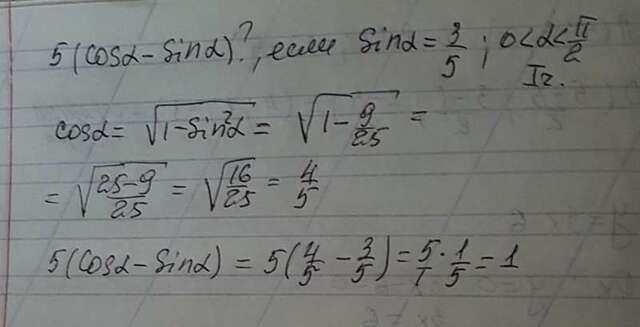 5(cosα-sinα)?, если sinα=3/5; 0<α<π/2
Iг.
cosα=√(1-sin²α)=√(1-9/25)=
=√((25-9)/25)=√(16/25)=4/5
5(cosα-sinα)=5(4/5-3/5)=5/1·1/5=1